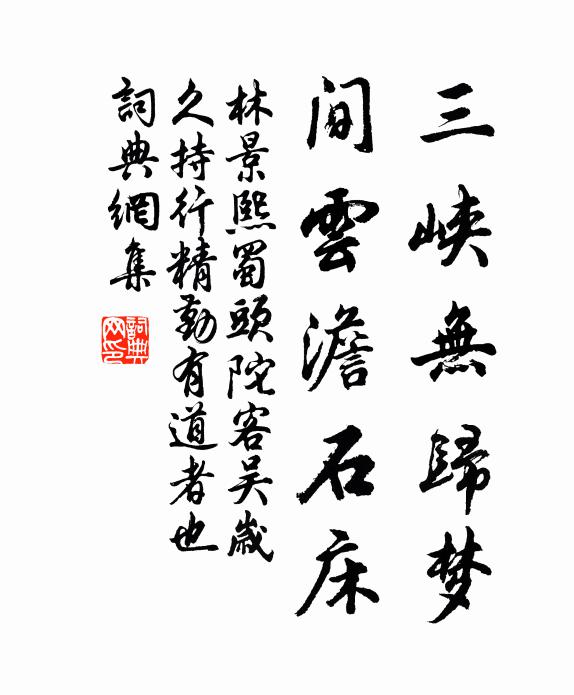 三峽無歸梦
间雲澹石床
林景熙蜀頭陀客吴歲
久持行精勤有道者也
詞典網集
詞典网印